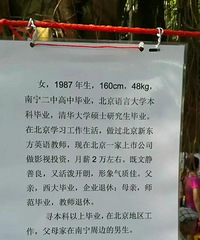 女，1987年生，160cm，48kg，
南宁二中高中毕业，北京语言大学本
科毕业，清华大学硕士研究生毕业。
在北京学习工作生活，做过北京新东
方英语教师，现在北京一家上市公司
做影视投资，月薪2万左右。既文静
善良，又活泼开朗，形象气质佳。父
亲，西大毕业，企业退休；母亲，师
范毕业，教师退休。
寻本科以上毕业，在北京地区工
作，父母家在南宁周边的男生。